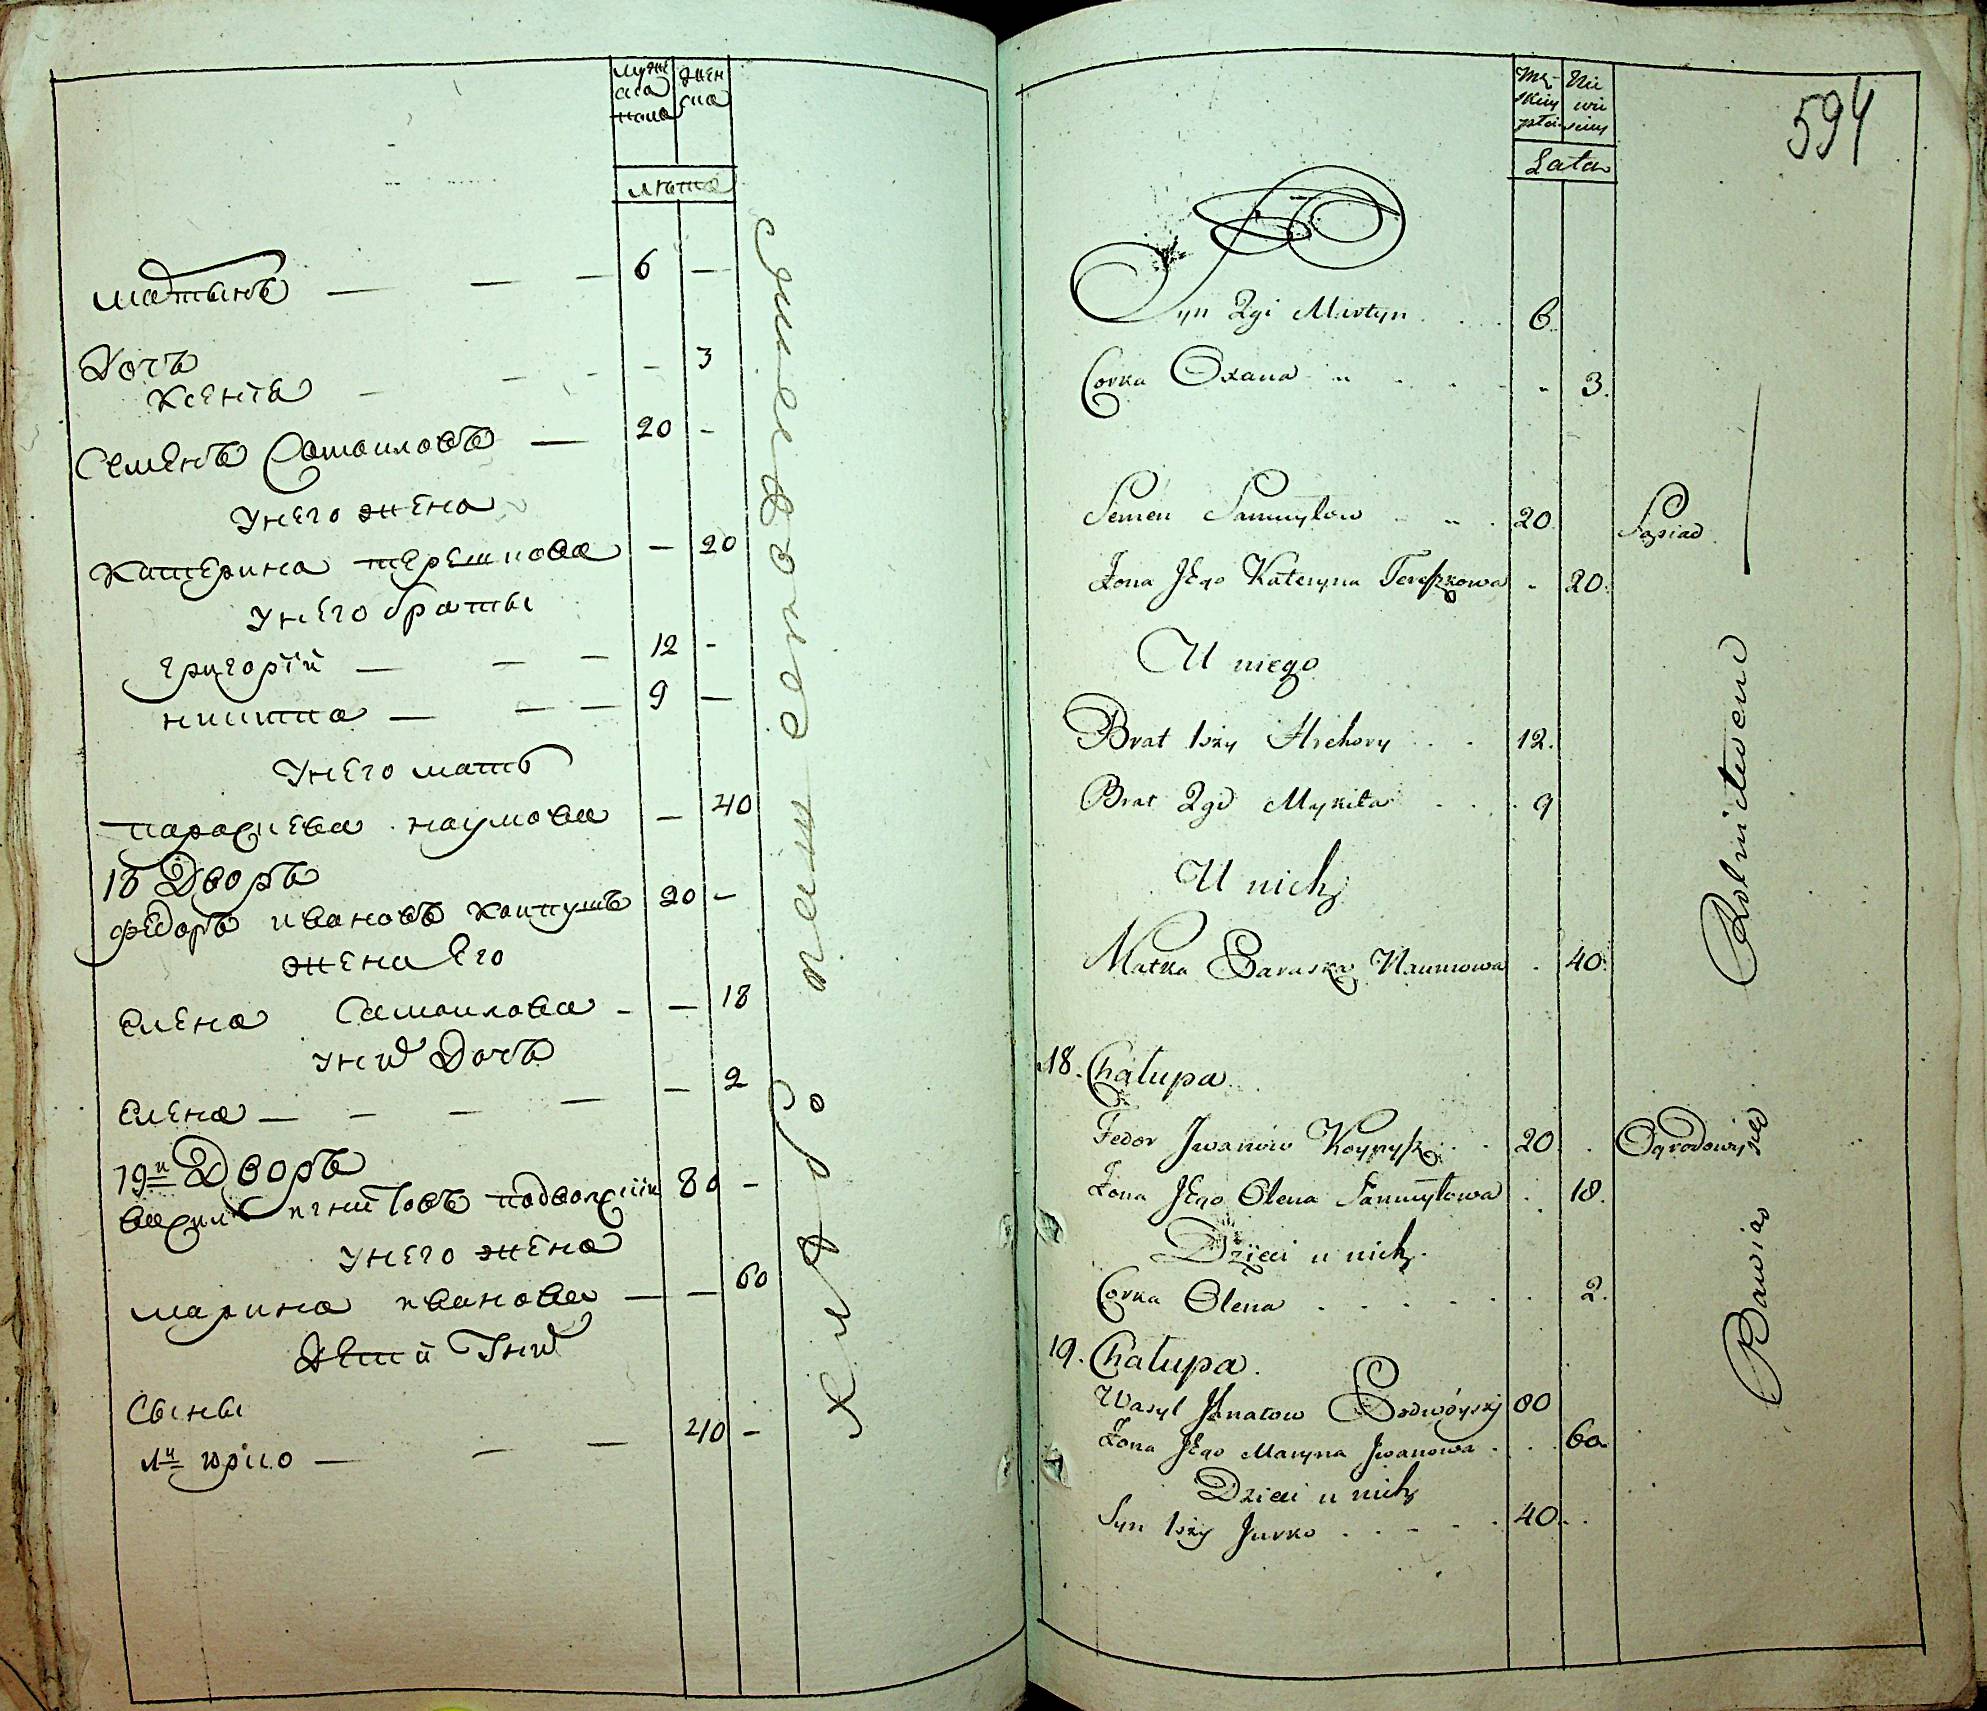 муже
ска
пола
жен
ска
лѣта
Мартынъ — — — 6 —
Дочь
Ксенїя — - - - 3
Семенъ Самоиловъ — 20 -
Унего жена
Катерина терешкова — 20
Унего браты
григорїй — — — 12 -
никита — — — 9 —
Унего мать
параскева наумова — 40
18 Дворъ
федоръ ивановъ 20 -
жена Его
Елена Самоилова - — 18
Уних Дочь
Елена — — — — — 2
19й Дворъ
василь игнатовъ подвойскїй 80 -
Унего жена
марина иванова — — 60
Дети Уних
Сыны
1й юрко — — — 40 -
594
Mę-
skiey
płci
Nie
wie
sciey
Lata
Syn 2gi Martyn . . . . 6.
Corka Oxana . . . . . 3.
Semen Samuyłow . . . 20. Sąsiad.
Żona Jego Kateryna Tereszkowa . 20.
U niego
Brat 1szy Hrehory . . 12.
Brat 2gi Mykita . . . 9
U nich
Matka Paraska Naumowa . 40.
18. Chałupa.
Fedor Jwanów . . 20. . Ogrodowy
Żona Jego Olena Samuyłowa . 18.
Dzieci u nich.
Corka Olena . . . . . . 2.
19. Chałupa.
Wasyl Jhnatow Podwóyski 80
Żona Jego Maryna Jwanowa . . 60.
Dzieci u nich
Syn 1szy Jurko . . . . . 40. .
Bawią się Rolnictwem —